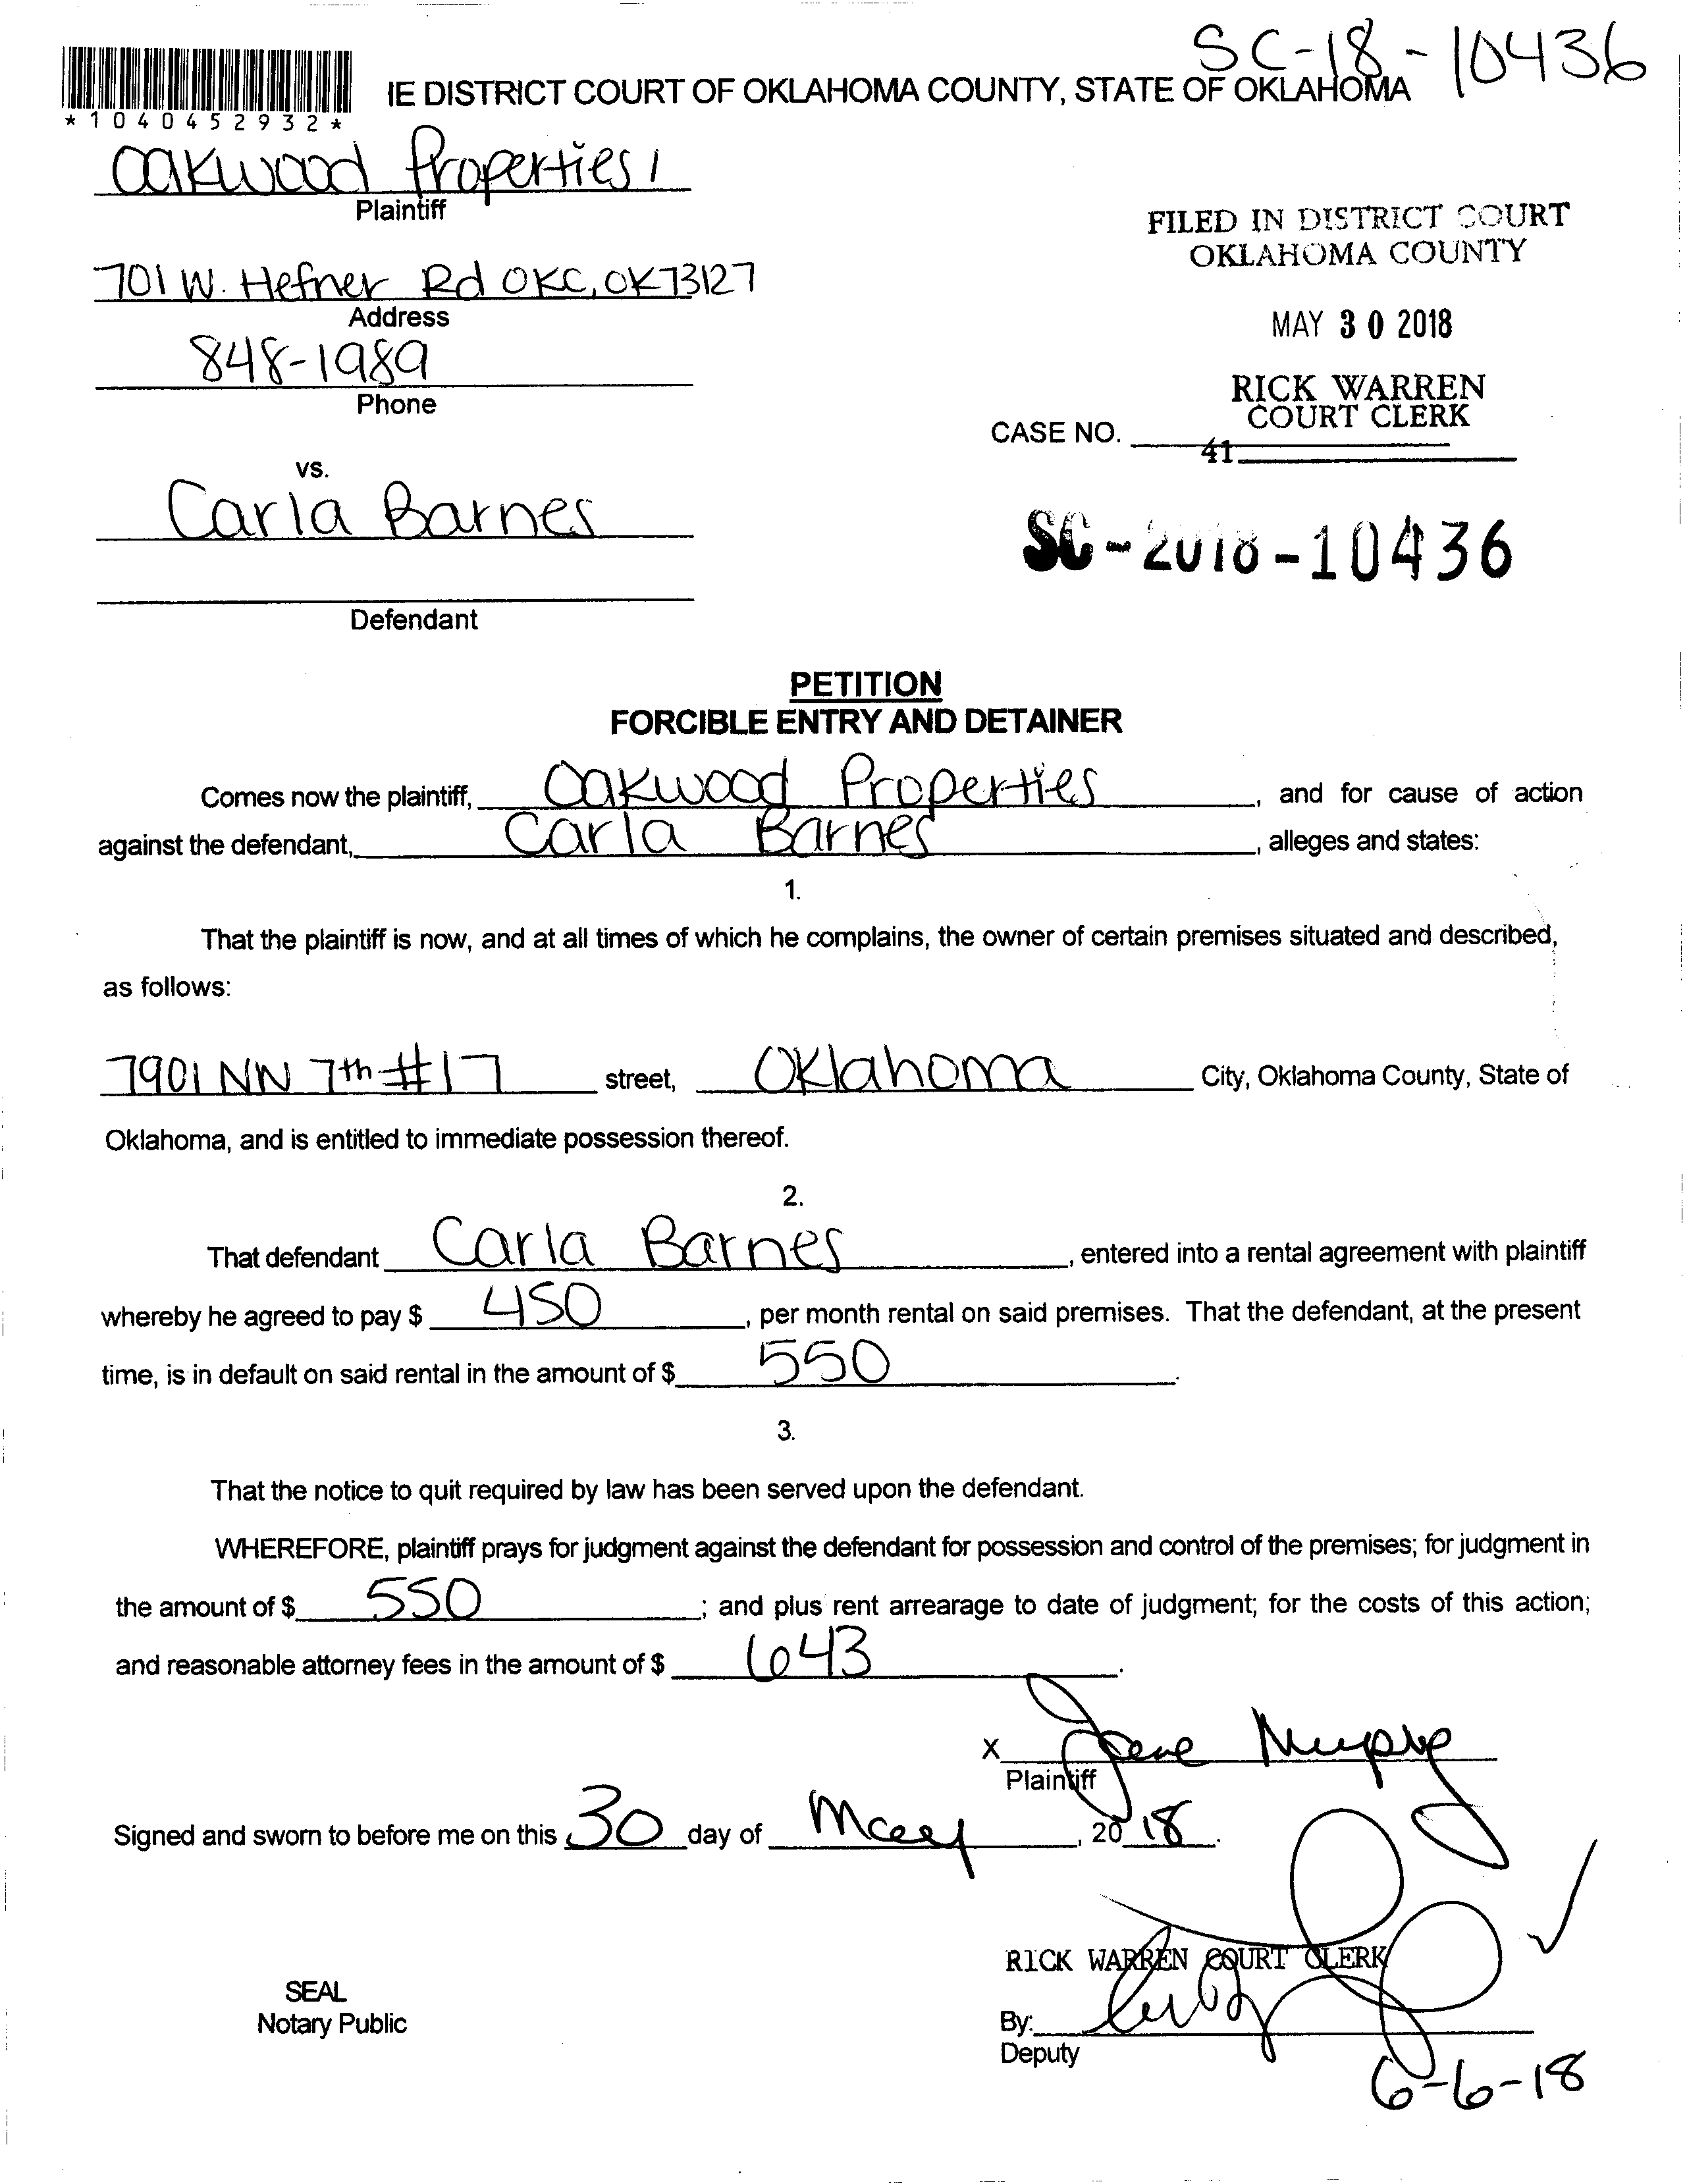 SC-18-10436
IE DISTRICT COURT OF OKLAHOMA COUNTY, STATE OF OKLAHOMA
*1040452932*
Oakwood Properties 1
Plaintiff
FILED IN DISTRICT COURT
OKLAHOMA COUNTY
701 W. Hefner Rd OKC, OK 73127
Address
MAY 30 2018
848-1989
Phone
RICK WARREN
COURT CLERK
CASE NO.
41
vs.
Carla Barnes
SC-2018-10436
Defendant
PETITION
FORCIBLE ENTRY AND DETAINER
Comes now the plaintiff, Oakwood Properties, and for cause of action
against the defendant, Carla Barnes, alleges and states:
1.
That the plaintiff is now, and at all times of which he complains, the owner of certain premises situated and described,
as follows:
7901 NW 7th #17 street, Oklahoma City, Oklahoma County, State of
Oklahoma, and is entitled to immediate possession thereof.
2.
That defendant Carla Barnes, entered into a rental agreement with plaintiff
whereby he agreed to pay $ 450, per month rental on said premises. That the defendant, at the present
time, is in default on said rental in the amount of $ 550.
3.
That the notice to quit required by law has been served upon the defendant.
WHEREFORE, plaintiff prays for judgment against the defendant for possession and control of the premises; for judgment in
the amount of $ 550; and plus rent arrearage to date of judgment; for the costs of this action;
and reasonable attorney fees in the amount of $ 643.
X Murphy
Plaintiff
Signed and sworn to before me on this 30 day of May, 2018.
RICK WARREN COURT CLERK
SEAL
Notary Public
By:
Deputy
6-6-18